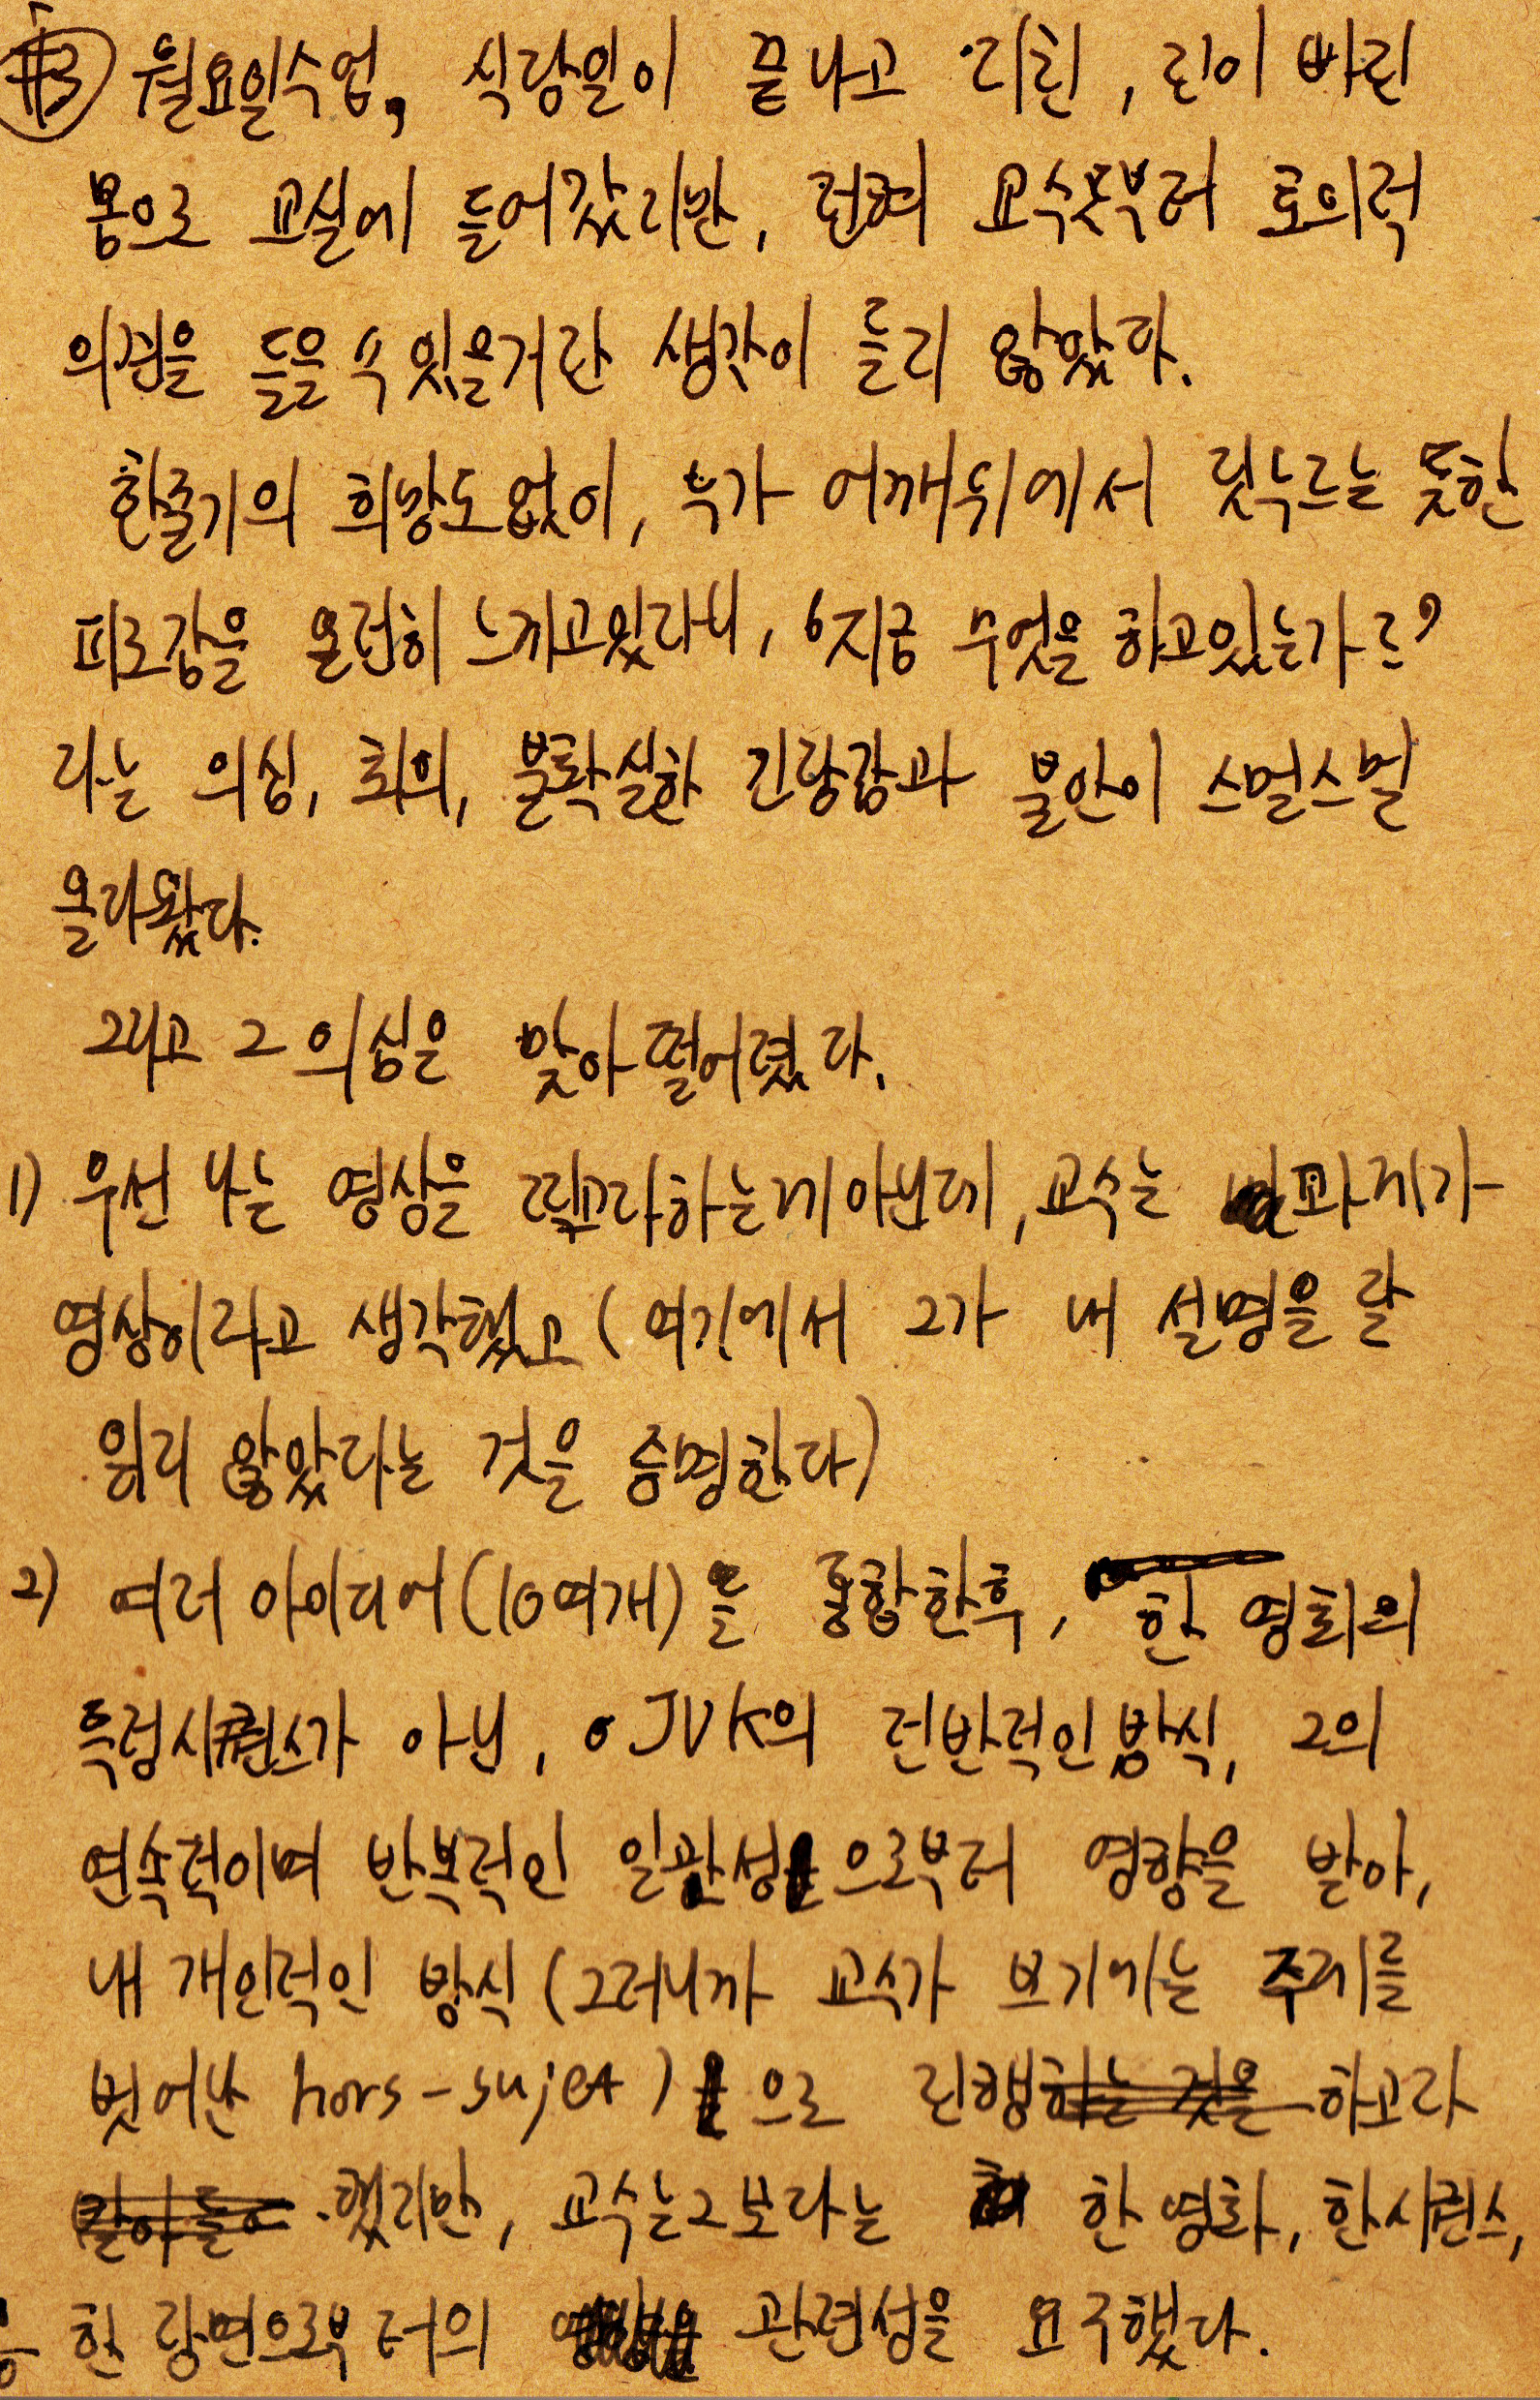 #3 월요일수업, 식당일이 끝나고 지친, 진이 빠진
몸으로 교실에 들어갔지만, 전혀 교수로부터 호의적
의견을 들을 수 있을거란 생각이 들지 않았다.
한줄기의 희망도 없이, 누가 어깨위에서 짓누르는 듯한
피로감을 온전히 느끼고있자니, '지금 무엇을 하고있는가?'
라는 의심, 회의, 불확실한 긴장감과 불안이 스멀스멀
올라왔다.
그리고 그 의심은 맞아 떨어졌다.
1) 우선 나는 영상을 찍고자하는게 아닌데, 교수는 과제가
영상이라고 생각했고 (여기에서 그가 내 설명을 잘
읽지 않았다는 것을 증명한다)
2) 여러 아이디어(10여개)을 종합한후, 한 영화의
특정시퀀스가 아닌, JVK의 전반적인 방식, 그의
연속적이며 반복적인 일관성으로부터 영향을 받아,
내 개인적인 방식 (그러니까 교수가 보기에는 주제를
벗어난 hors-sujet)으로 진행하고자
했지만, 교수는 그보다는 한 영화, 한시퀀스,
한 장면으로부터의 관련성을 요구했다.